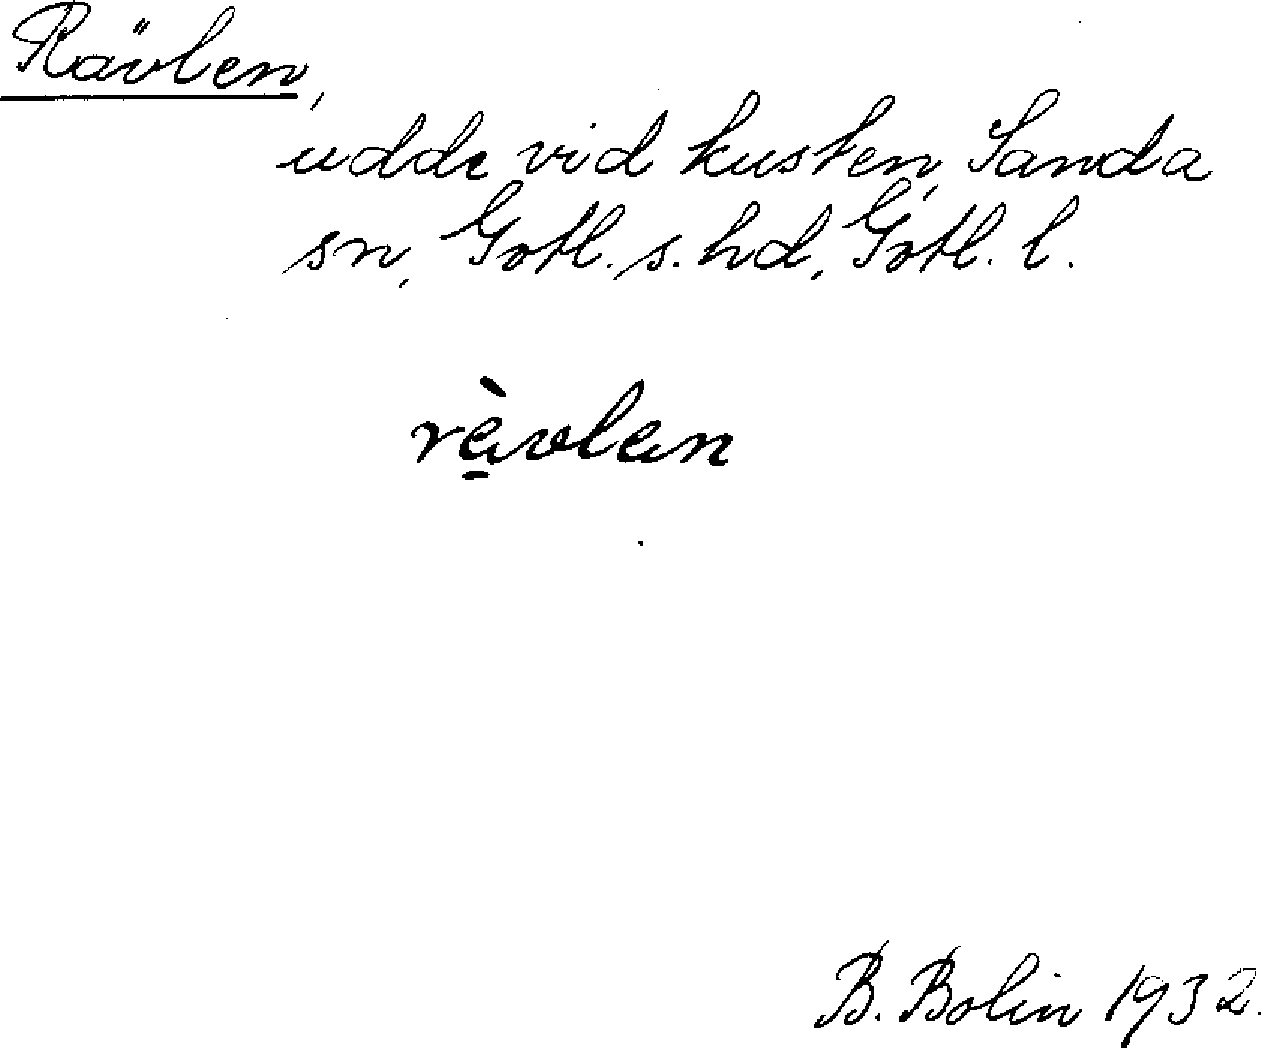 Rävlen,
udde vid kusten, Sanda
sn, Gotl. s. hd, Gotl. l.
rävlen
B. Bolin 1932.